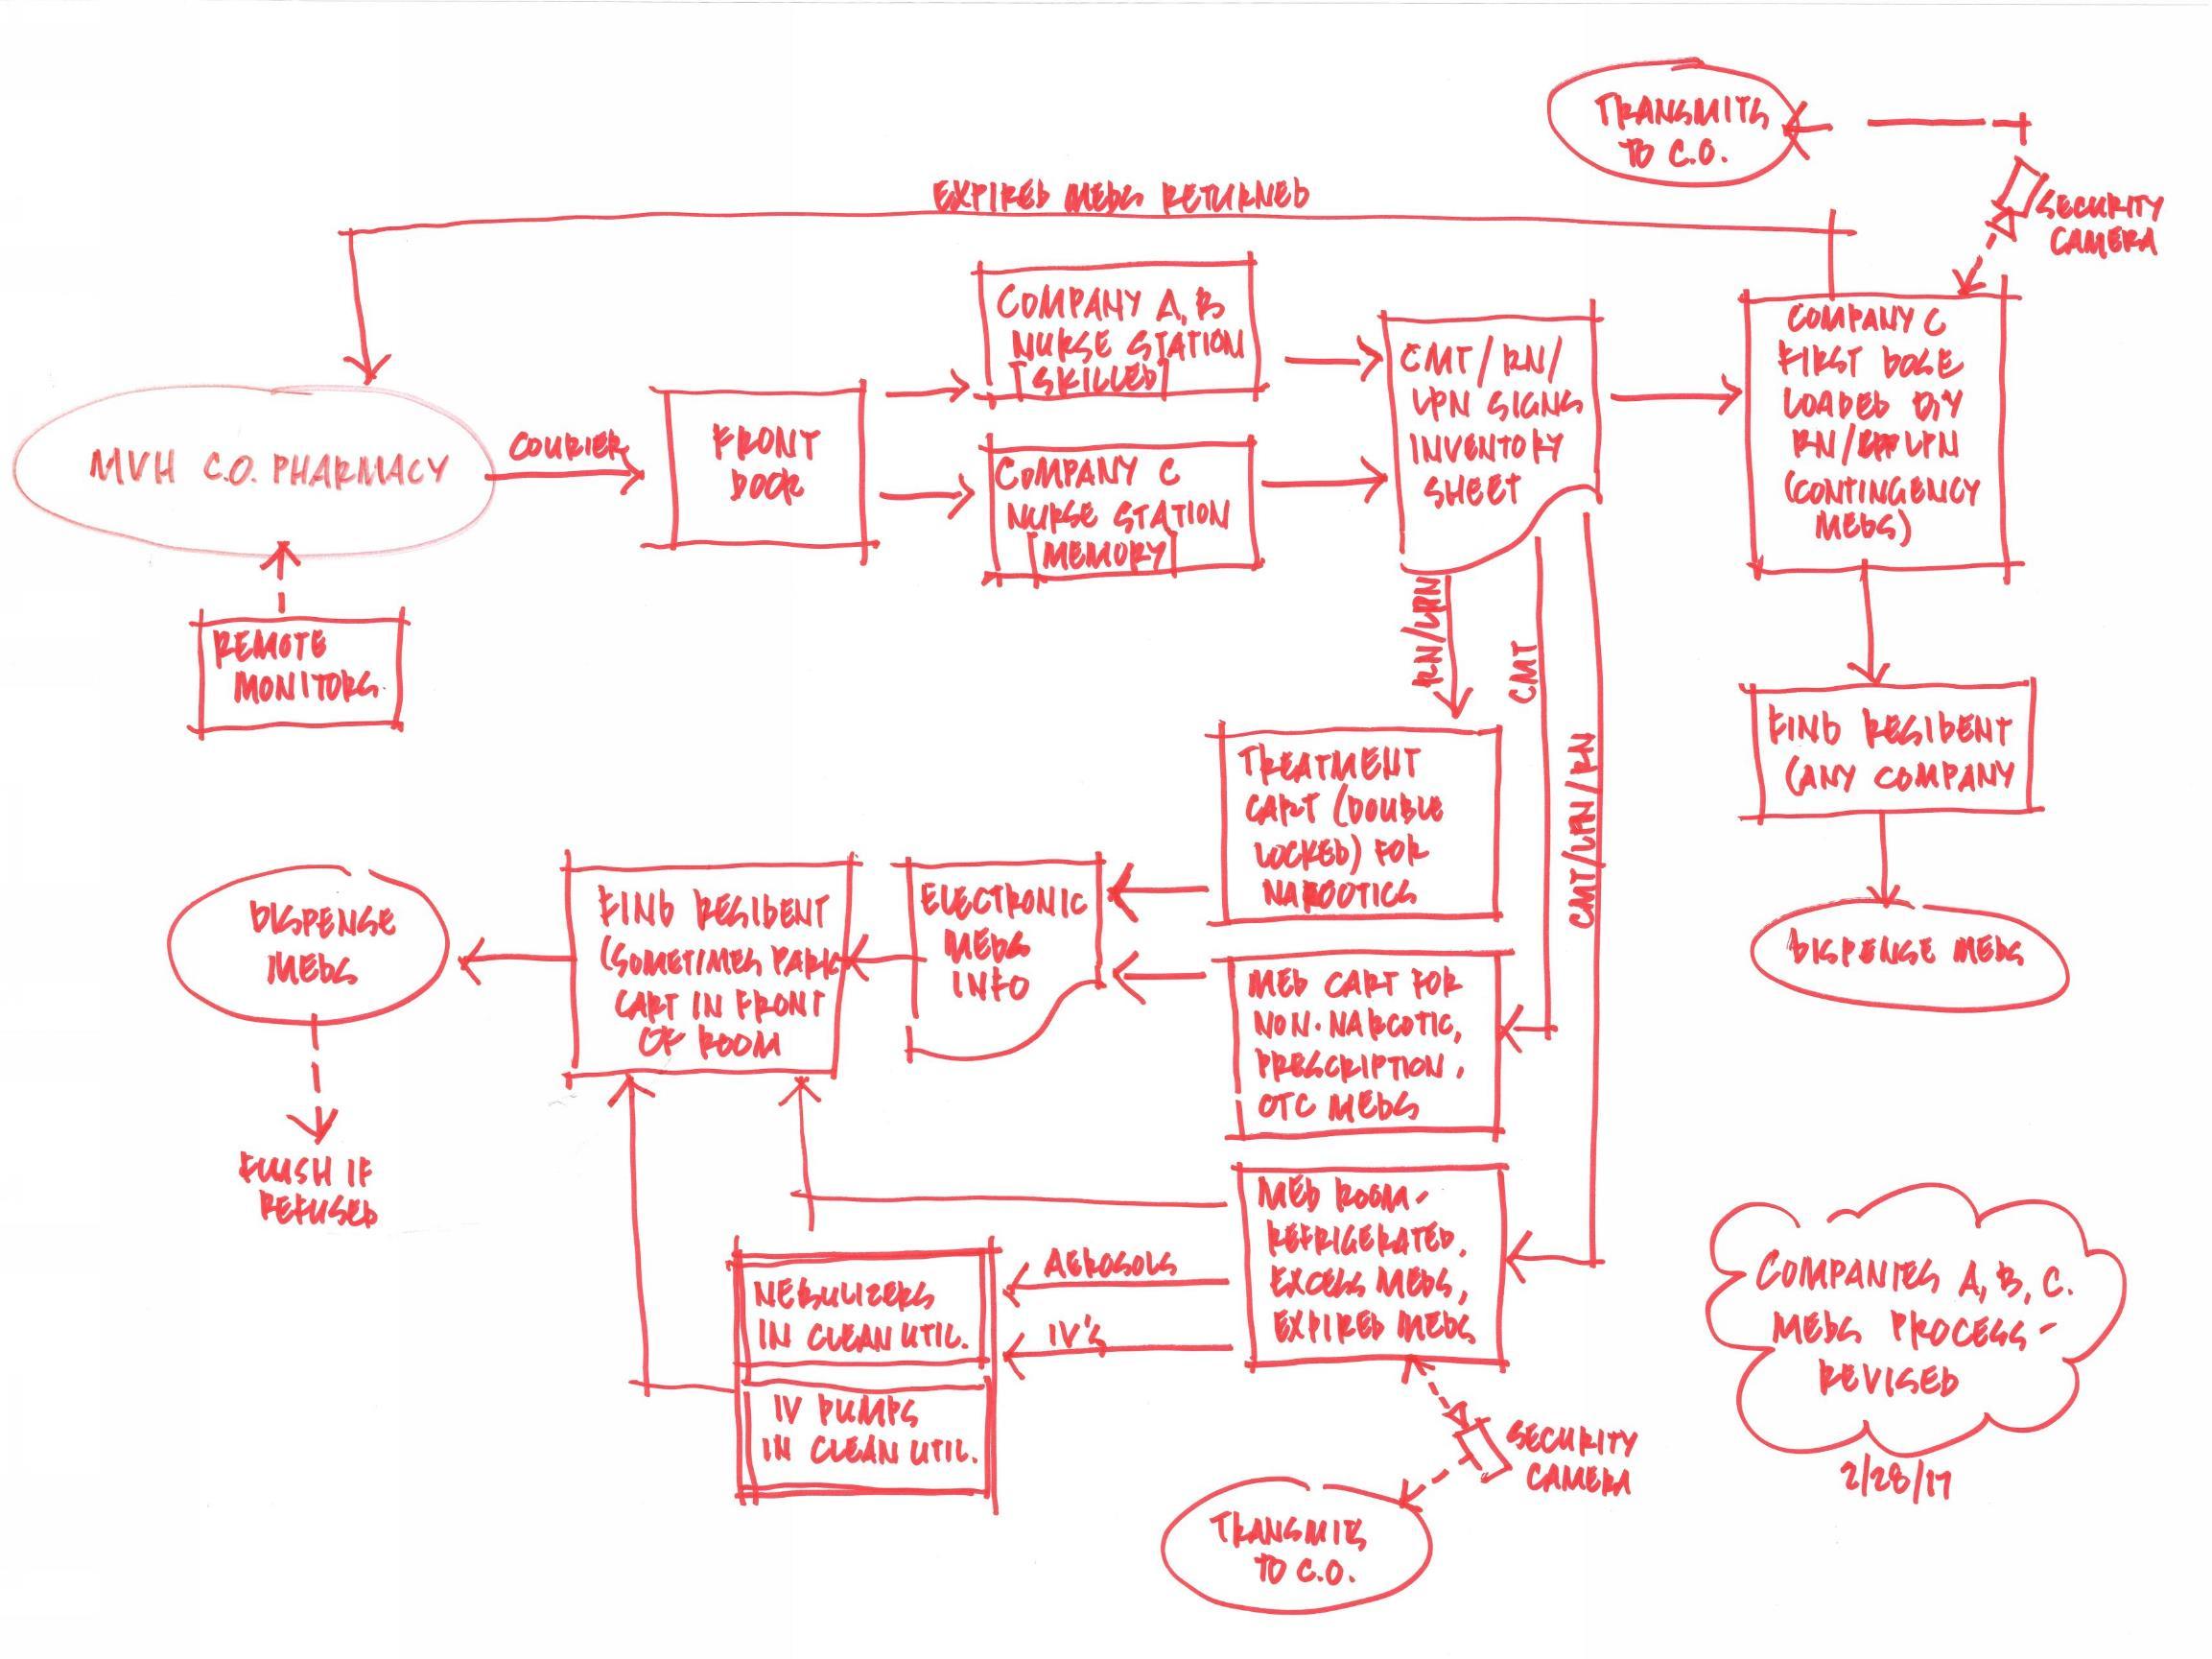 TRANSMITS
TO C.O.
SECURITY
CAMERA
EXPIRED MEDS RETURNED
MVH C.O. PHARMACY
COURIER
FRONT
DOOR
COMPANY A, B
NURSE STATION
[SKILLED]
COMPANY C
NURSE STATION
[MEMORY]
CMT/RN/
LPN SIGNS
INVENTORY
SHEET
COMPANY C
FIRST DOSE
LOADED BY
RN/LPN
(CONTINGENCY
MEDS)
REMOTE
MONITORS
RN/LPN
CMT
CMT/LPN/RN
FIND RESIDENT
(ANY COMPANY
DISPENSE MEDS
TREATMENT
CART (DOUBLE
LOCKED) FOR
NARCOTICS
MED CART FOR
NON-NARCOTIC,
PRESCRIPTION,
OTC MEDS
ELECTRONIC
MEDS
INFO
FIND RESIDENT
(SOMETIMES PARK
CART IN FRONT
OF ROOM
DISPENSE
MEDS
FLUSH IF
REFUSED
MED ROOM-
REFRIGERATED,
EXCESS MEDS,
EXPIRED MEDS
AEROSOLS
IV'S
NEBULIZERS
IN CLEAN UTIL.
IV PUMPS
IN CLEAN UTIL.
SECURITY
CAMERA
TRANSMITS
TO C.O.
COMPANIES A, B, C.
MEDS PROCESS-
REVISED
2/28/17